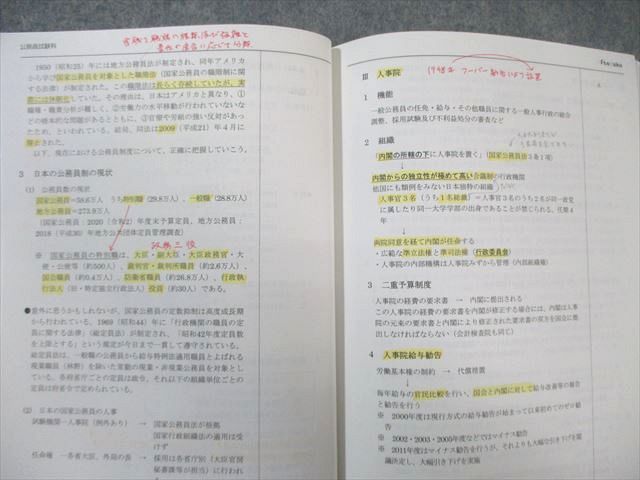 公務員試験科
官職を職務の種類及び複雑と
責任の度合に応じて分類
1950（昭和25）年には地方公務員法が制定され、同年アメリカ
から学び国家公務員を対象とした職階法（国家公務員の職階制に関
する法律）が制定された。この職階法は長らく存続していたが、実
際には休眠化していた。その理由は、日本はアメリカと異なり、①
職種・職掌分析が難しく、②労働力の水平移動が行われていないな
どの根本的な問題があるとともに、③官庁や労組の強い反対があっ
たため、といわれている。結局、同法は2009（平成21）年4月に
廃止された。
以下、現在における公務員制度について、正確に把握していこう。
3 日本の公務員制の現状
(1) 公務員数の現状
国家公務員=58.6万人 うち特別職（29.8万人）、一般職（28.8万人）
地方公務員=273.9万人
（国家公務員：2020（令和2）年度末予算定員、地方公務員：
2018（平成30）年地方公共団体定員管理調査）
政務三役
※ 国家公務員の特別職は、大臣・副大臣・大臣政務官・大
使・公使等（約500人）、裁判官・裁判所職員（約2.6万人）、
国会職員（約0.4万人）、防衛省職員（26.8万人）、行政執
行法人（旧・特定独立行政法人）役員（約30人）である。
●意外に思うかもしれないが、国家公務員の定数抑制は高度成長期
から行われている。1969（昭和44）年に「行政機関の職員の定
員に関する法律」（総定員法）が制定され、「昭和42年度定員数
を上限とする」という規定が今日まで一貫して遵守されている。
総定員法は、一般職の公務員から給与特例法適用職員とよばれる
現業職員（林野）を除いた常勤の現業・非現業公務員を対象として
いる。各府省庁ごとの定員は政令、それ以下の組織単位ごとの
定員は府省令で定められている。
(2) 日本の国家公務員の人事
試験機関―人事院（例外あり） → 国家公務員法が根拠
国家行政組織法の適用は受
けず
任命権 ―各省大臣、外局の長 → 採用は各省庁別（大臣官房
秘書課等が担当）に行われ
Ⅲ 人事院
1948年 フーバー勧告により設置
1 機能
一般公務員の任免・給与・その他職員に関する一般人事行政の総合
調整、採用試験及び不利益処分の審査など
2 組織
「内閣の所轄の下に人事院を置く」（国家公務員法3条1項）
↓
内閣からの独立性が極めて高い合議制の行政機関
他国にも類例をみない日本独特の組織
人事官3名（うち1名総裁） =人事官3名のうち2名が同一政党
に属したり同一大学学部の出身であることが禁じられる、任期4
年
↓
両院同意を経て内閣が任命する
・広範な準立法権と準司法権（行政委員会）
・人事院の内部機構は人事院みずから管理（内部組織権）
3 二重予算制度
人事院の経費の要求書 → 内閣に提出される
この人事院の経費の要求書を内閣が修正する場合には、内閣は人事
院の元来の要求書と内閣により修正された要求書の双方を国会に提
出しなければならない（会計検査院も同じ）
4 人事院給与勧告
労働基本権の制約 → 代償措置
↓
毎年給与の官民比較を行い、国会と内閣に対して給与改善等の報告
と勧告を行う
※ 2000年度は現行方式の給与勧告が始まって以来初めてのゼロ勧
告
※ 2002・2003・2005年度などではマイナス勧告
※ 2011年度はマイナス勧告を行うが、それよりも大幅な引き下げを閣
議決定し、大幅引き下げを実施